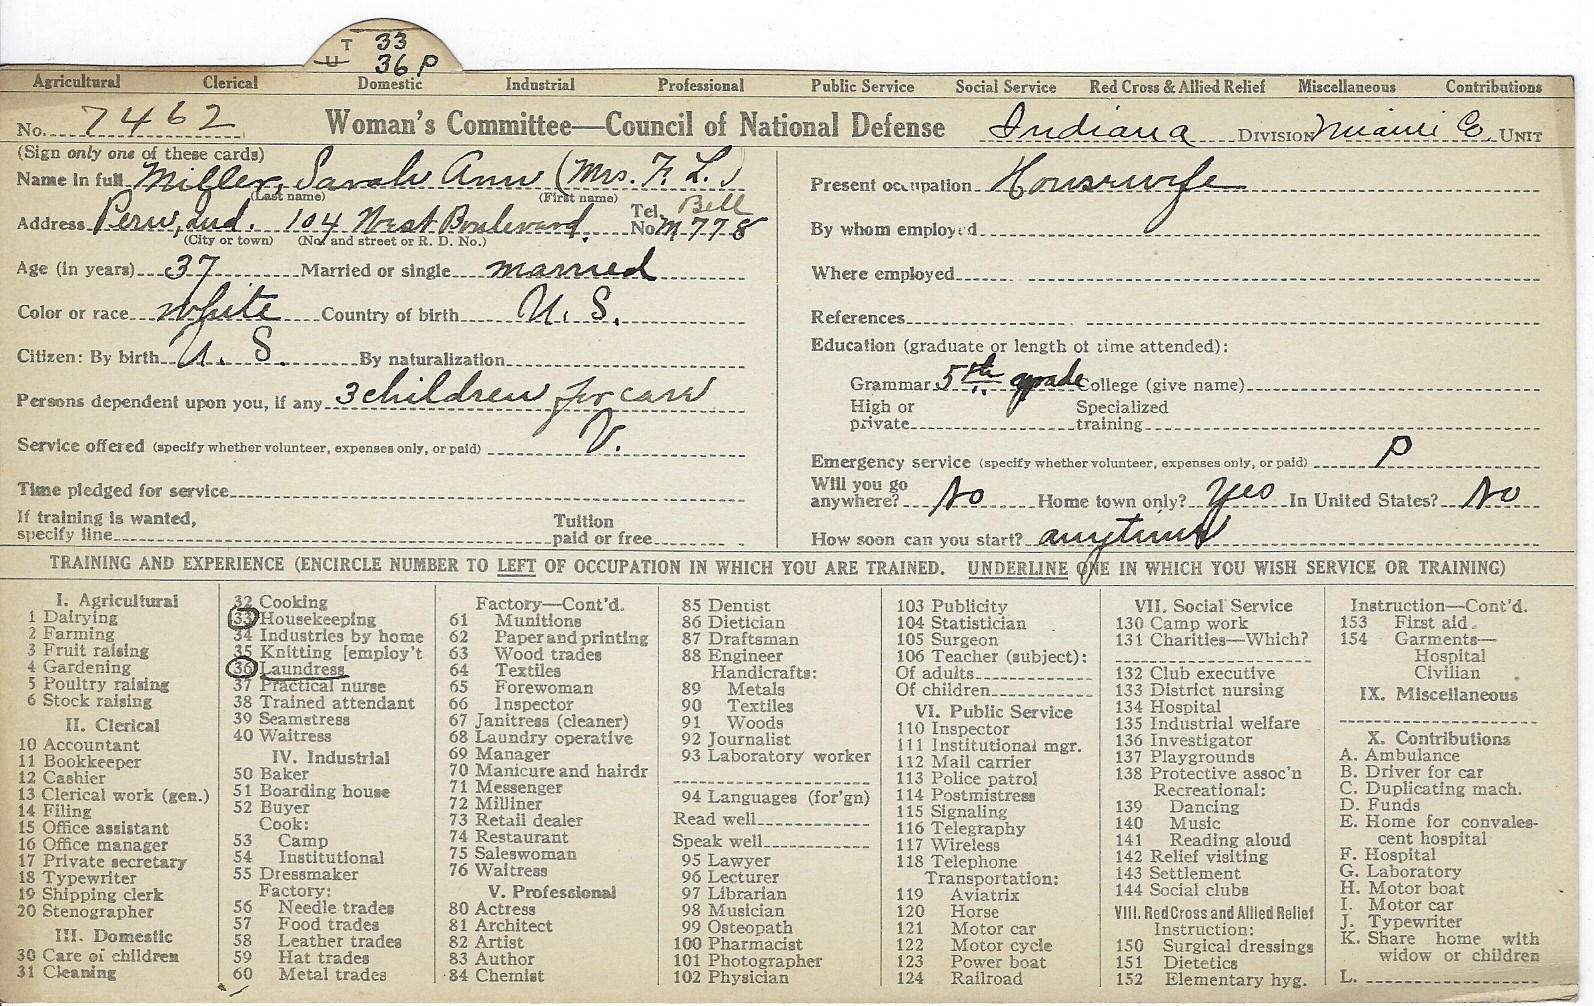 T 33
U 36 P
Agricultural Clerical Domestic Industrial Professional Public Service Social Service Red Cross & Allied Relief Miscellaneous Contributions
No. 7462 Woman's Committee—Council of National Defense Indiana DIVISION Miami Co. UNIT
(Sign only one of these cards)
Name in full Miller, Sarah Ann (Mrs. F. L.)
(Last name) (First name)
Address Peru, Ind. 104 West Boulevard. Tel. No. Bell M 778
(City or town) (No. and street or R. D. No.)
Age (in years) 37 Married or single married
Color or race white Country of birth U. S.
Citizen: By birth U. S. By naturalization
Persons dependent upon you, if any 3 children for care
Service offered (specify whether volunteer, expenses only, or paid) V.
Time pledged for service
If training is wanted, specify line Tuition paid or free
Present occupation Housewife
By whom employed
Where employed
References
Education (graduate or length of time attended):
Grammar 5th grade College (give name)
High or private Specialized training
Emergency service (specify whether volunteer, expenses only, or paid) P
Will you go anywhere? No Home town only? Yes In United States? No
How soon can you start? anytime
TRAINING AND EXPERIENCE (ENCIRCLE NUMBER TO LEFT OF OCCUPATION IN WHICH YOU ARE TRAINED. UNDERLINE ONE IN WHICH YOU WISH SERVICE OR TRAINING)
I. Agricultural
1 Dairying
2 Farming
3 Fruit raising
4 Gardening
5 Poultry raising
6 Stock raising
II. Clerical
10 Accountant
11 Bookkeeper
12 Cashier
13 Clerical work (gen.)
14 Filing
15 Office assistant
16 Office manager
17 Private secretary
18 Typewriter
19 Shipping clerk
20 Stenographer
III. Domestic
30 Care of children
31 Cleaning
32 Cooking
33 Housekeeping
34 Industries by home
35 Knitting [employ't
36 Laundress
37 Practical nurse
38 Trained attendant
39 Seamstress
40 Waitress
IV. Industrial
50 Baker
51 Boarding house
52 Buyer
Cook:
53 Camp
54 Institutional
55 Dressmaker
Factory:
56 Needle trades
57 Food trades
58 Leather trades
59 Hat trades
60 Metal trades
Factory—Cont'd.
61 Munitions
62 Paper and printing
63 Wood trades
64 Textiles
65 Forewoman
66 Inspector
67 Janitress (cleaner)
68 Laundry operative
69 Manager
70 Manicure and hairdr
71 Messenger
72 Milliner
73 Retail dealer
74 Restaurant
75 Saleswoman
76 Waitress
V. Professional
80 Actress
81 Architect
82 Artist
83 Author
84 Chemist
85 Dentist
86 Dietician
87 Draftsman
88 Engineer
Handicrafts:
89 Metals
90 Textiles
91 Woods
92 Journalist
93 Laboratory worker
94 Languages (for'gn)
Read well
Speak well
95 Lawyer
96 Lecturer
97 Librarian
98 Musician
99 Osteopath
100 Pharmacist
101 Photographer
102 Physician
103 Publicity
104 Statistician
105 Surgeon
106 Teacher (subject):
Of adults
Of children
VI. Public Service
110 Inspector
111 Institutional mgr.
112 Mail carrier
113 Police patrol
114 Postmistress
115 Signaling
116 Telegraphy
117 Wireless
118 Telephone
Transportation:
119 Aviatrix
120 Horse
121 Motor car
122 Motor cycle
123 Power boat
124 Railroad
VII. Social Service
130 Camp work
131 Charities—Which?
132 Club executive
133 District nursing
134 Hospital
135 Industrial welfare
136 Investigator
137 Playgrounds
138 Protective assoc'n
Recreational:
139 Dancing
140 Music
141 Reading aloud
142 Relief visiting
143 Settlement
144 Social clubs
VIII. Red Cross and Allied Relief
Instruction:
150 Surgical dressings
151 Dietetics
152 Elementary hyg.
Instruction—Cont'd.
153 First aid
154 Garments—
Hospital
Civilian
IX. Miscellaneous
X. Contributions
A. Ambulance
B. Driver for car
C. Duplicating mach.
D. Funds
E. Home for convales-
cent hospital
F. Hospital
G. Laboratory
H. Motor boat
I. Motor car
J. Typewriter
K. Share home with
widow or children
L.